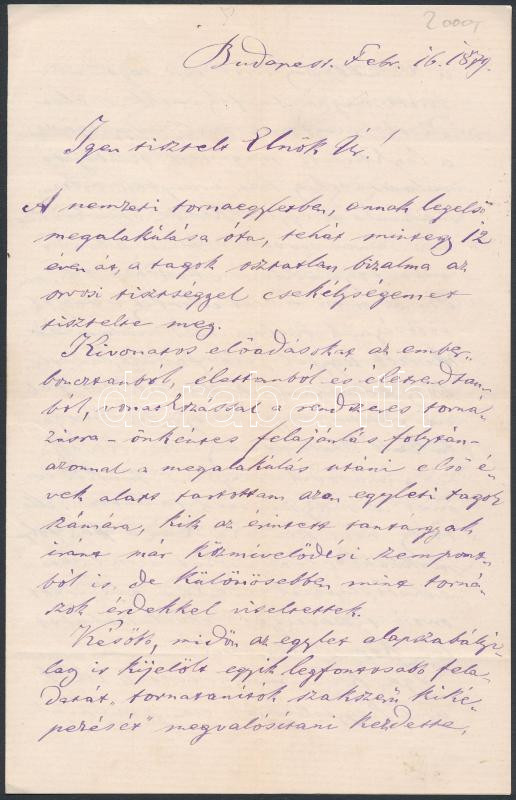 2000,
Budapest. Febr. 16. 1879.
Igen tisztelt Elnök Úr!
A nemzeti tornaegyletben, annak legelső
megalakúlása óta, tehát mintegy 12
éven át, a tagok osztatlan bizalma az
orvosi tisztséggel csekélységemet
tisztelte meg.
Kivonatos előadásokat az ember-
boncztanból, élettanból és életrendtan-
ból, vonatkozással a rendszeres torná-
zásra – önkéntes felajánlás folytán –
azonnal a megalakúlás utáni első é-
vek alatt tartottam azon egyleti tagok
számára, kik az érintett tantárgyak
iránt már közmívelődési szempont-
ból is, de különösebben mint torná-
szok érdekkel viseltettek.
Később, midőn az egylet alapszabályi-
lag is kijelölt egyik legfontosabb fela-
datát „tornatanítók szakszerű kiké-
pezését" megvalósítani kezdette,
darabanth